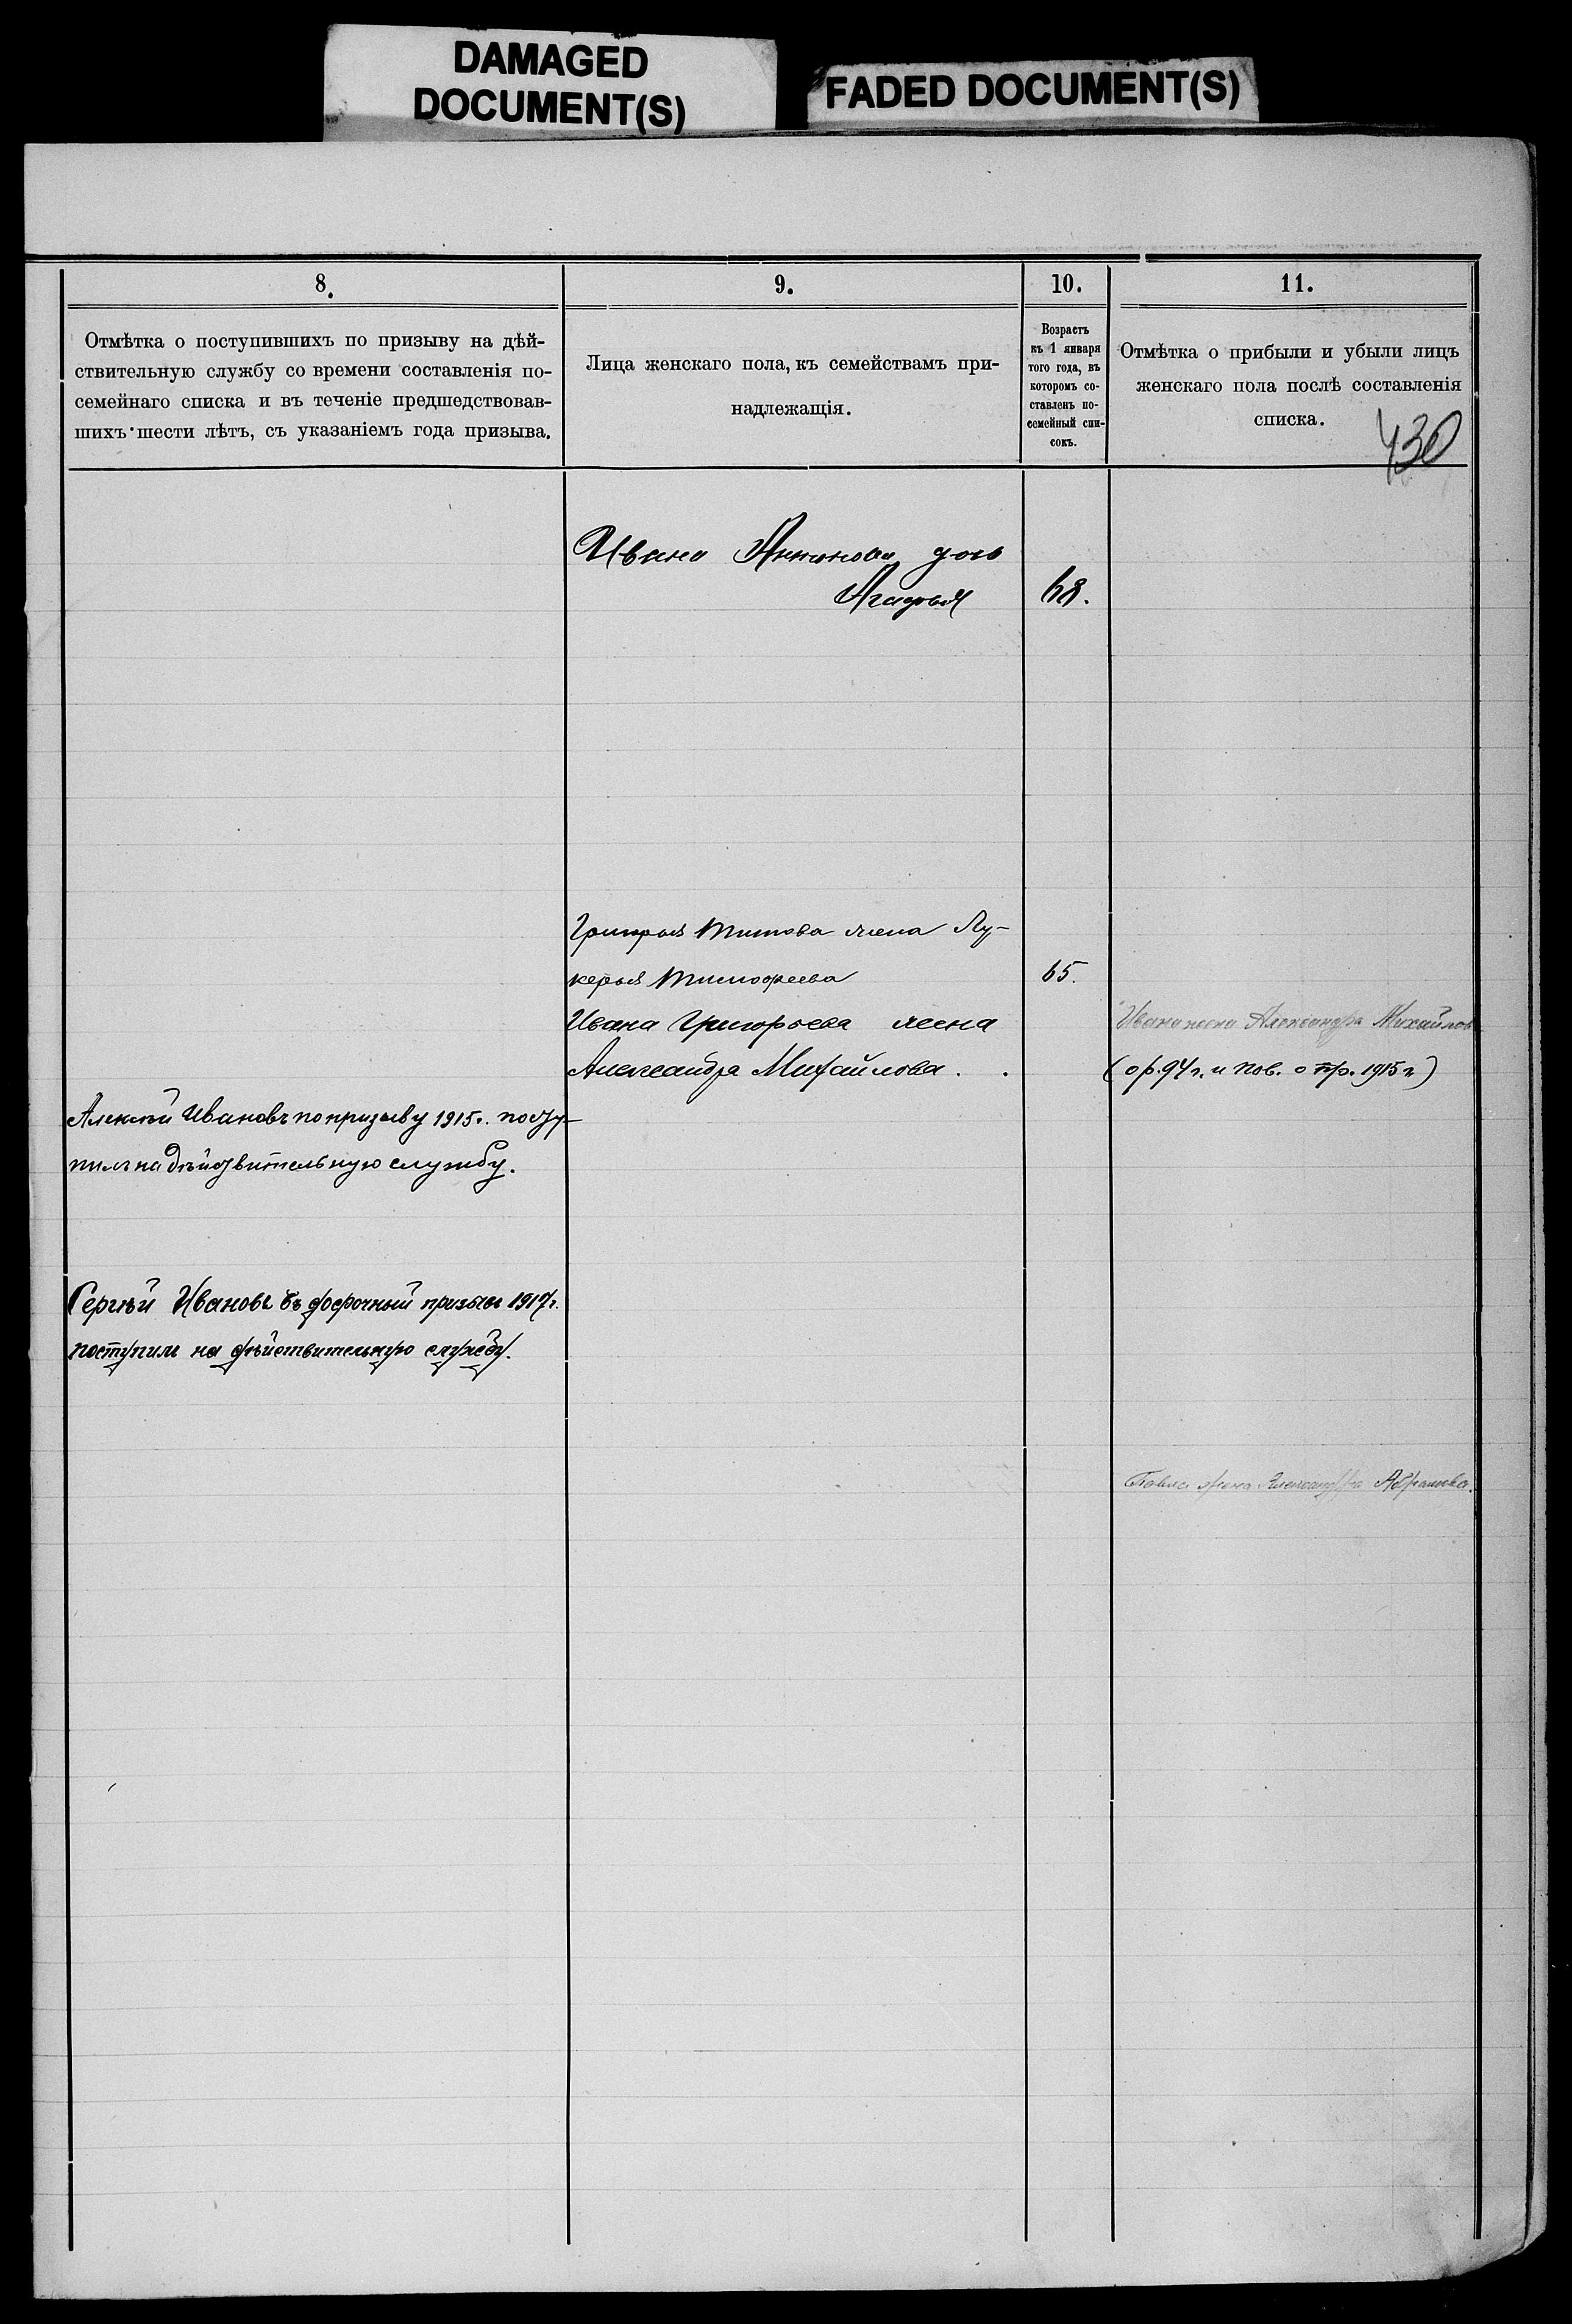 DAMAGED
DOCUMENT(S)
FADED DOCUMENT(S)
8.
9.
10.
11.
Отмѣтка о поступившихъ по призыву на дѣй-
ствительную службу со времени составленія по-
семейнаго списка и въ теченіе предшедствовав-
шихъ шести лѣтъ, съ указаніемъ года призыва.
Лица женскаго пола, къ семействамъ при-
надлежащія.
Возрастъ
къ 1 января
того года, въ
которомъ со-
ставленъ по-
семейный спи-
сокъ.
Отмѣтка о прибыли и убыли лицъ
женскаго пола послѣ составленія
списка.
430
Ивана Антонова дочь
Агафья
68.
Григорья Титова жена Лу-
керья Тимофеева
65.
Ивана Григорьева жена
Александра Михайлова.
Ивана жена Александра Михайлов
(о р. 94 г. и пов. о пр. 1915 г.)
Алексѣй Ивановъ по призыву 1915 г. посту-
пилъ на дѣйствительную службу.
Сергѣй Ивановъ въ досрочный призывъ 1917 г.
поступилъ на дѣйствительную службу.
Павла жена Александра Абрамова.